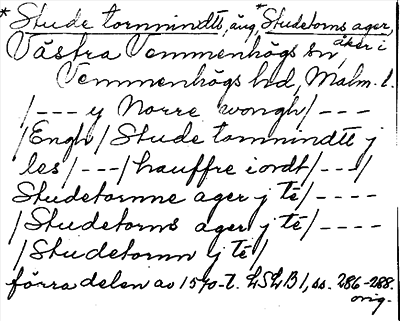 *Stude tornnindtt, äng, *Studetorns ager, åker i
Västra Vemmenhögs sn,
Vemmenhögs hd, Malm. l.
/--- y Norre wongh/---
/Engh/Stude tornnindtt j
les/---/hauffre iordt/---/
Studetornne ager j té/----
/Studetorns ager j té/----
/Studetornn j té/
förra delen av 1570-t. LSLB 1, ss. 286-288.
orig.